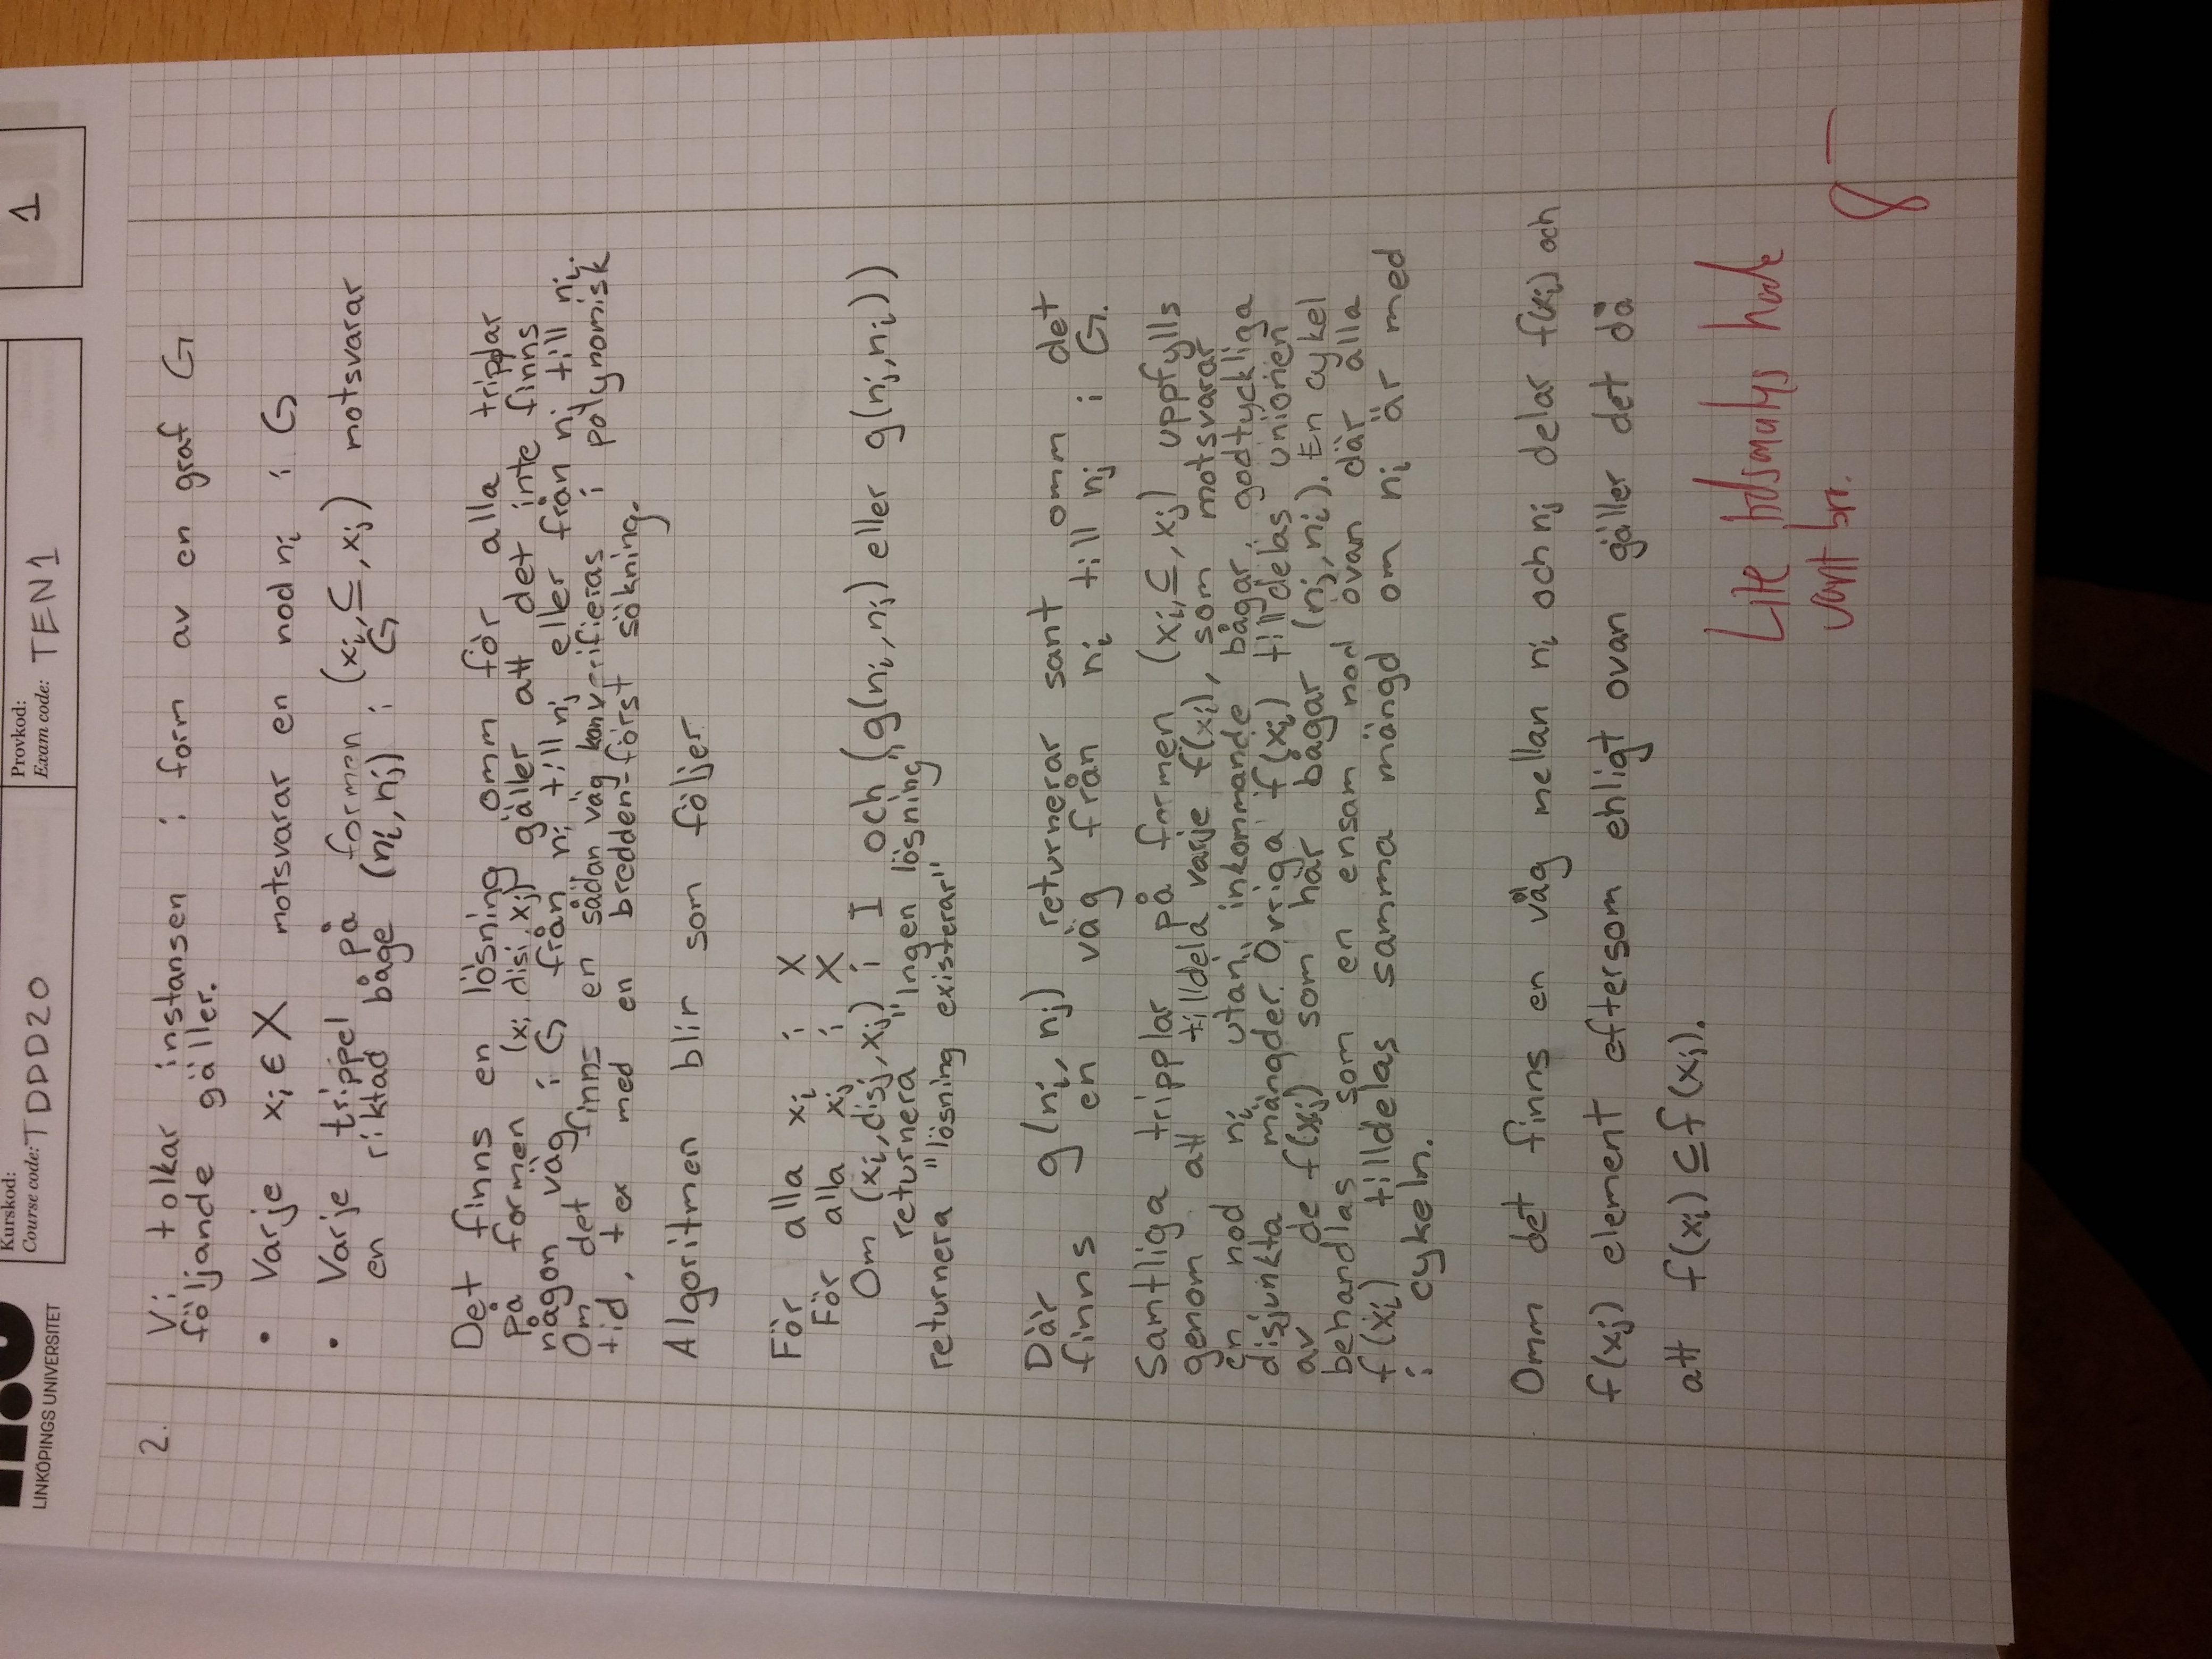 LINKÖPINGS UNIVERSITET
Kurskod:
Course code: TDDD20
Provkod:
Exam code: TEN1
1
2. Vi tolkar instansen i form av en graf G
följande gäller.
• Varje xi ∈ X motsvarar en nod ni i G
• Varje trippel på formen (xi, ⊆, xj) motsvarar
en riktad båge (ni, nj) i G
Det finns en lösning omm för alla tripplar
På formen (xi disj, xj) gäller att det inte finns
någon väg i G från ni till nj eller från nj till ni.
Om det finns en sådan väg kan verifieras i polynomisk
tid, t ex med en bredden-först sökning.
Algoritmen blir som följer
För alla xi i X
För alla xj i X
Om (xi, disj, xj) i I och (g(ni, nj) eller g(nj, ni))
returnera "Ingen lösning
returnera "lösning existerar"
Där g(ni, nj) returnerar sant omm det
finns en väg från ni till nj i G.
Samtliga tripplar på formen (xi, ⊆, xj) uppfylls
genom att tilldela varje f(xi), som motsvarar
en nod ni utan inkommande bågar, godtyckliga
disjunkta mängder. Övriga f(xi) tilldelas unionen
av de f(xj) som har bågar (nj, ni). En cykel
behandlas som en ensam nod ovan där alla
f(xi) tilldelas samma mängd om ni är med
i cykeln.
Omm det finns en väg mellan ni och nj delar f(xi) och
f(xj) element eftersom enligt ovan gäller det då
att f(xi) ⊆ f(xj).
Lite hade
varit bra.
8